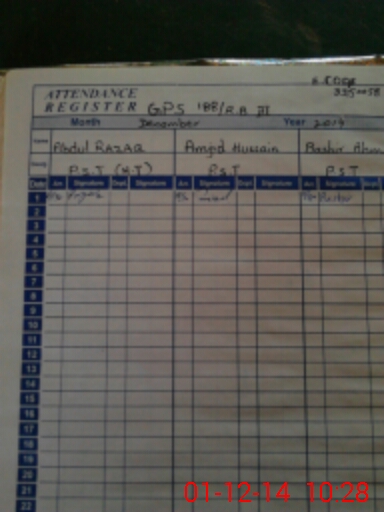 ATTENDANCE
REGISTER GPS 188/R.B II
Month December Year 2014
Name Abdul RAZAQ Amjd Hussain Bashir Ahm
P.S.T (H.T) P.S.T P.S.T
Date Arr. Signature Dept. Signature Arr. Signature Dept. Signature Arr. Signature Dept.
1
2
3
4
5
6
7
8
9
10
11
12
13
14
15
16
17
18
19
20
21
22
01-12-14 10:28